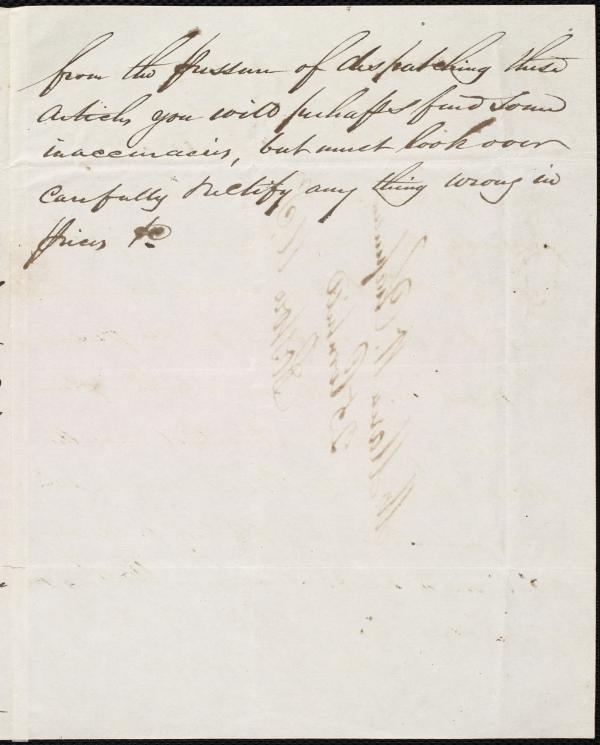 from the pressure of despatching these
articles you will perhaps find some
inaccuracies, but must look over
carefully & rectify any thing wrong in
prices &c